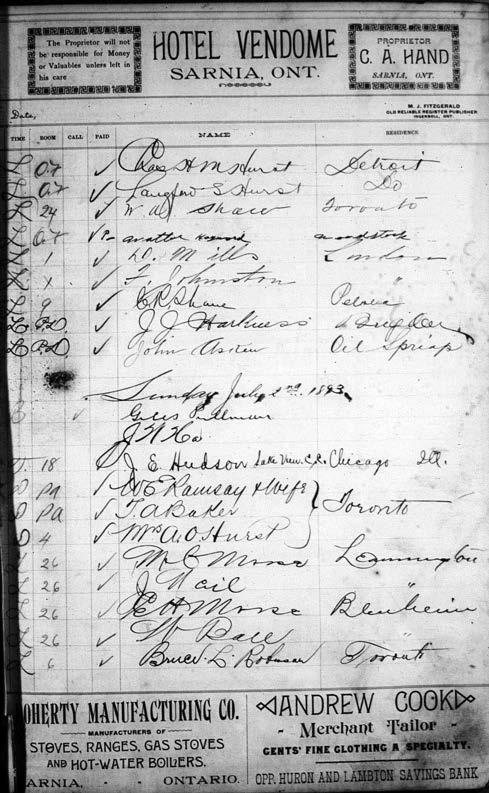 The Proprietor will not
be responsible for Money
or Valuables unless left in
his care
HOTEL VENDOME
SARNIA, ONT.
PROPRIETOR
C. A. HAND
SARNIA, ONT.
M. J. FITZGERALD
OLD RELIABLE REGISTER PUBLISHER
INGERSOLL, ONT.
Date,
TIME ROOM CALL PAID NAME RESIDENCE
L O.T ✓ Chas H M Hurst Detroit
L O.T ✓ Langford S Hurst Do
L 24 ✓ W. A. Shaw Toronto
L O.T ✓ Woodstock
1 ✓ D. Mills London
X ✓ F. Johnston "
L 9 ✓ Shane Petrolea
L P.D ✓ J J Harkness
L P.D ✓ John Askew Oil Springs
Sunday July 2nd. 1893.
✓ Giles Pullman
J W
18 J. E. Hudson Lake View C.C. Chicago Ill.
Pd W E Ramsay & Wife
Pd T. A Baker Toronto
4 ✓ Mrs A O Hurst
L 26 ✓ M C Morse Leamington
L 26 ✓ J Nail "
L 26 ✓ E H Morse Blenheim
L 26 ✓ W Ball "
L 6 ✓ Bruce L. Robinson Toronto
OHERTY MANUFACTURING CO.
MANUFACTURERS OF
STOVES, RANGES, GAS STOVES
AND HOT-WATER BOILERS.
ARNIA, - - ONTARIO.
ANDREW COOK
- Merchant Tailor -
GENTS' FINE CLOTHING A SPECIALTY.
OPP. HURON AND LAMBTON SAVINGS BANK